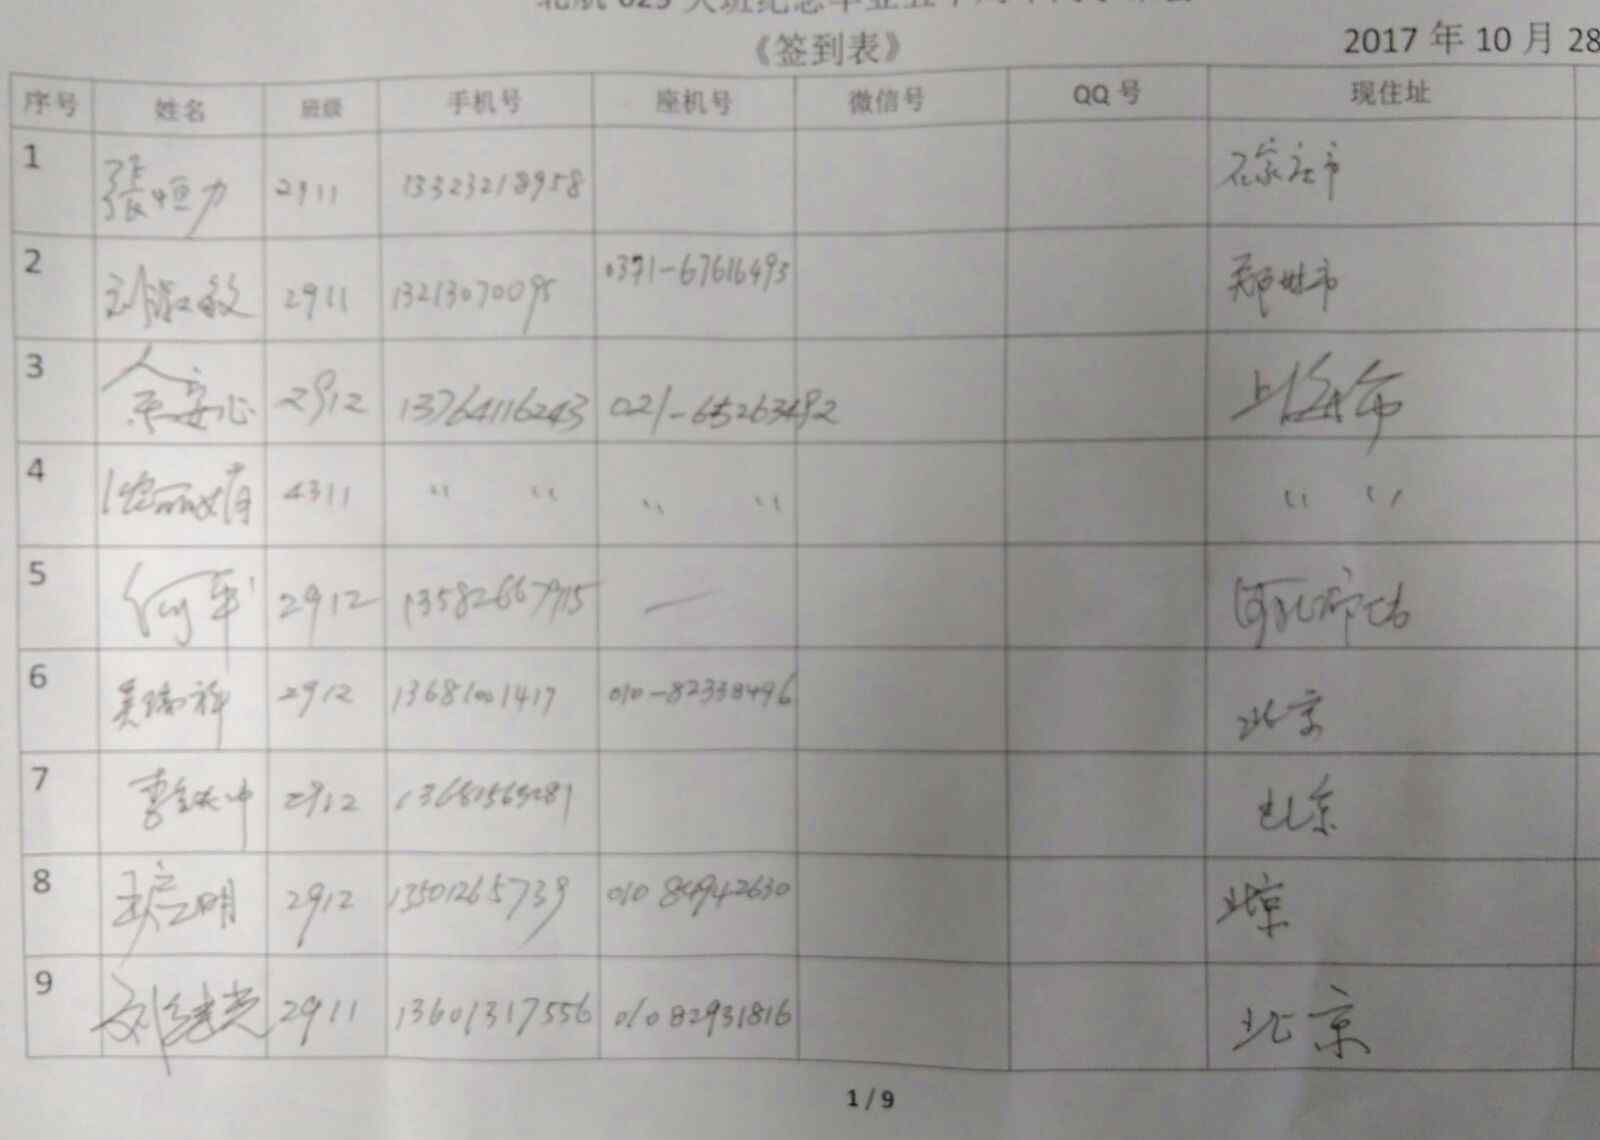 《签到表》
2017 年 10 月 28
序号 姓名 班级 手机号 座机号 微信号 QQ 号 现住址
1 张恒力 2911 13323218958 石家庄市
2 刘淑敏 2911 13213070095 0371-67616493 郑州市
3 余安心 2912 13764116243 021-65263492 上海市
4 4311 〃 〃 〃 〃 〃 〃
5 何军 2912 13582667915 — 河北廊坊
6 吴瑞祥 2912 13681001417 010-82338496 北京
7 2912 13681565281 北京
8 2912 13501265739 010 84942630 北京
9 刘继光 2911 13601317556 010 82931816 北京
1 / 9